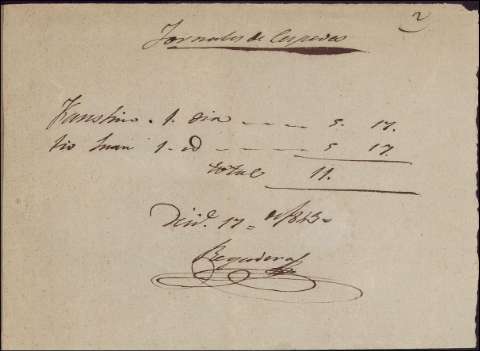 2
Jornales de Cespedes
Faustino. 1. dia — — — 5. 17.
tio Juan 1. id — — — 5 17.
total 11.
17 = de 1843=
Regadera